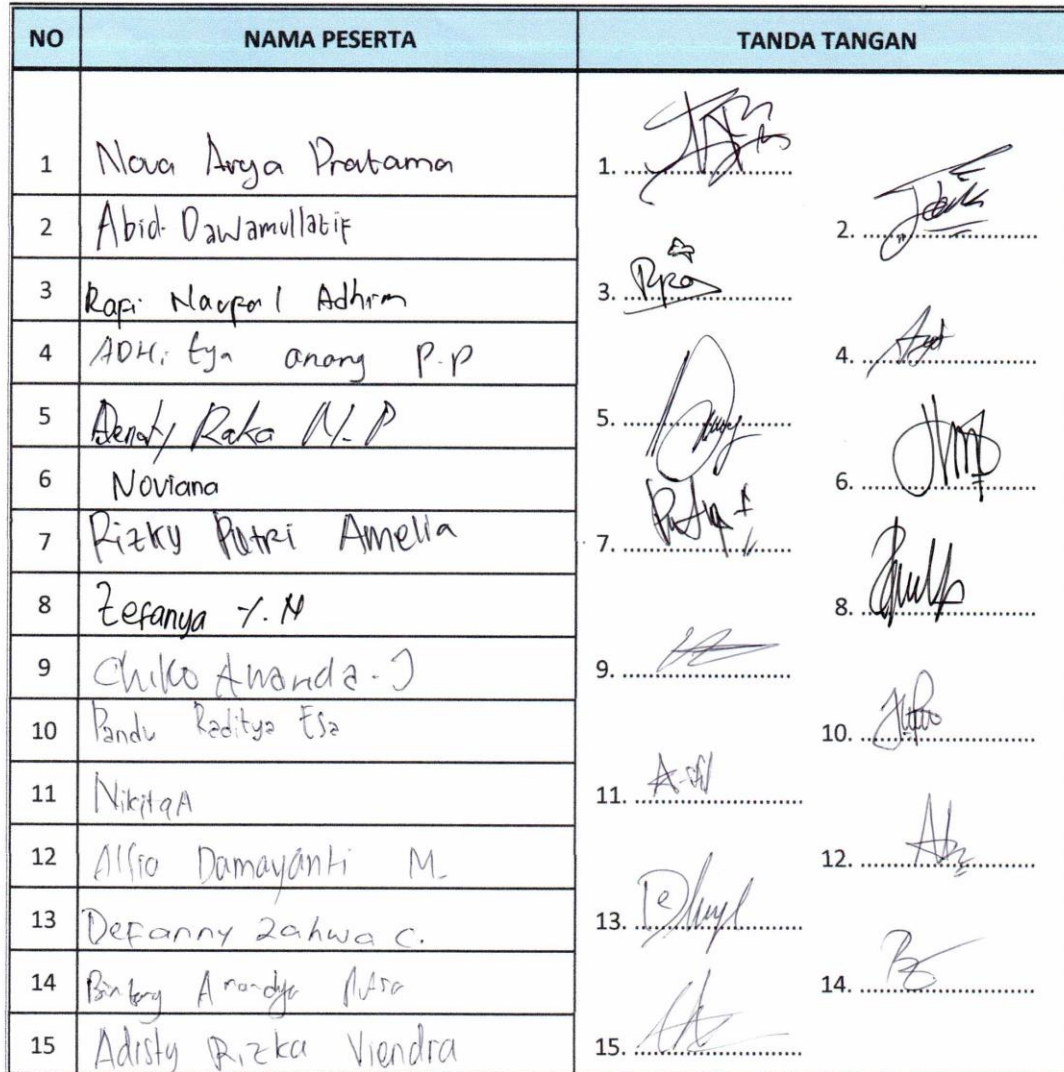 NO NAMA PESERTA TANDA TANGAN
1 Nova Arya Pratama 1.
2 Abid Dawamullatif 2.
3 Rafi Naufal Adhim 3.
4 ADHitya anang P.P 4.
5 Raka N.P 5.
6 Noviana 6.
7 Rizky Putri Amelia 7.
8 Zefanya Y.N 8.
9 Chiko Ananda.J 9.
10 Pandu Raditya Esa 10.
11 Nikita A 11.
12 Damayanti M. 12.
13 Defanny Zahwa C. 13.
14 Bintang 14.
15 Adisty Rizka Viendra 15.